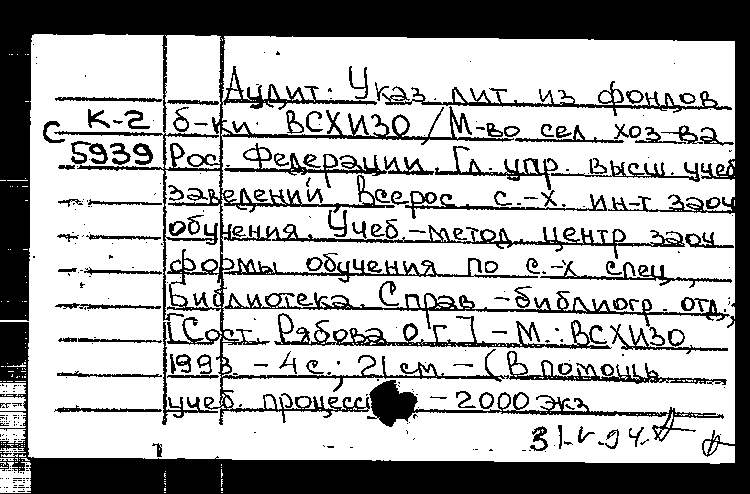 Аудит: Указ. лит. из фондов
К-2 б-ки ВСХИЗО / М-во сел. хоз-ва
С 5939 Рос. Федерации. Гл. упр. высш. учеб
заведений, Всерос. с.-х. ин-т заоч
обучения. Учеб.-метод. центр заоч
формы обучения по с.-х спец.,
Библиотека. Справ.-библиогр. отд.;
[Сост. Рябова О.Г.] - М.: ВСХИЗО,
1993 - 4 с.; 21 см. - (В помощь
учеб. - 2000 экз